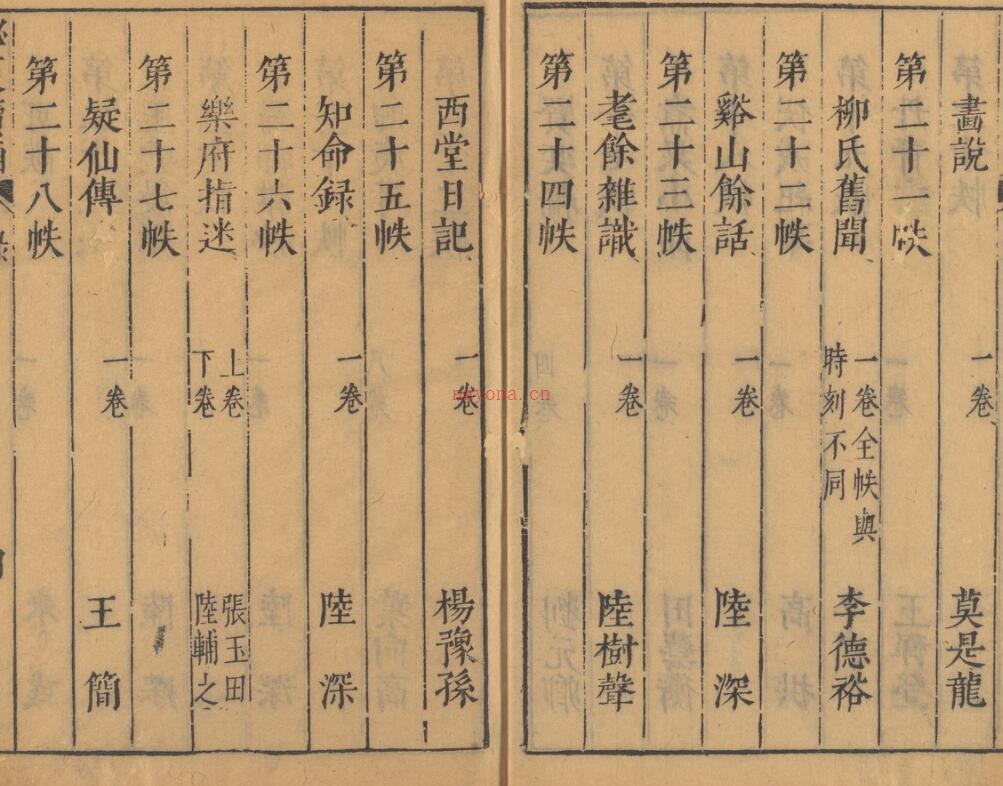 畵說 一卷 莫是龍
第二十一帙
柳氏舊聞 一卷全帙與時刻不同 李德裕
第二十二帙
谿山餘話 一卷 陸深
第二十三帙
耄餘雜識 一卷 陸樹聲
第二十四帙
西堂日記 一卷 楊豫孫
第二十五帙
知命録 一卷 陸深
第二十六帙
樂府指迷 上卷下卷 張玉田陸輔之
第二十七帙
疑仙傳 一卷 王簡
第二十八帙
nayona.cn